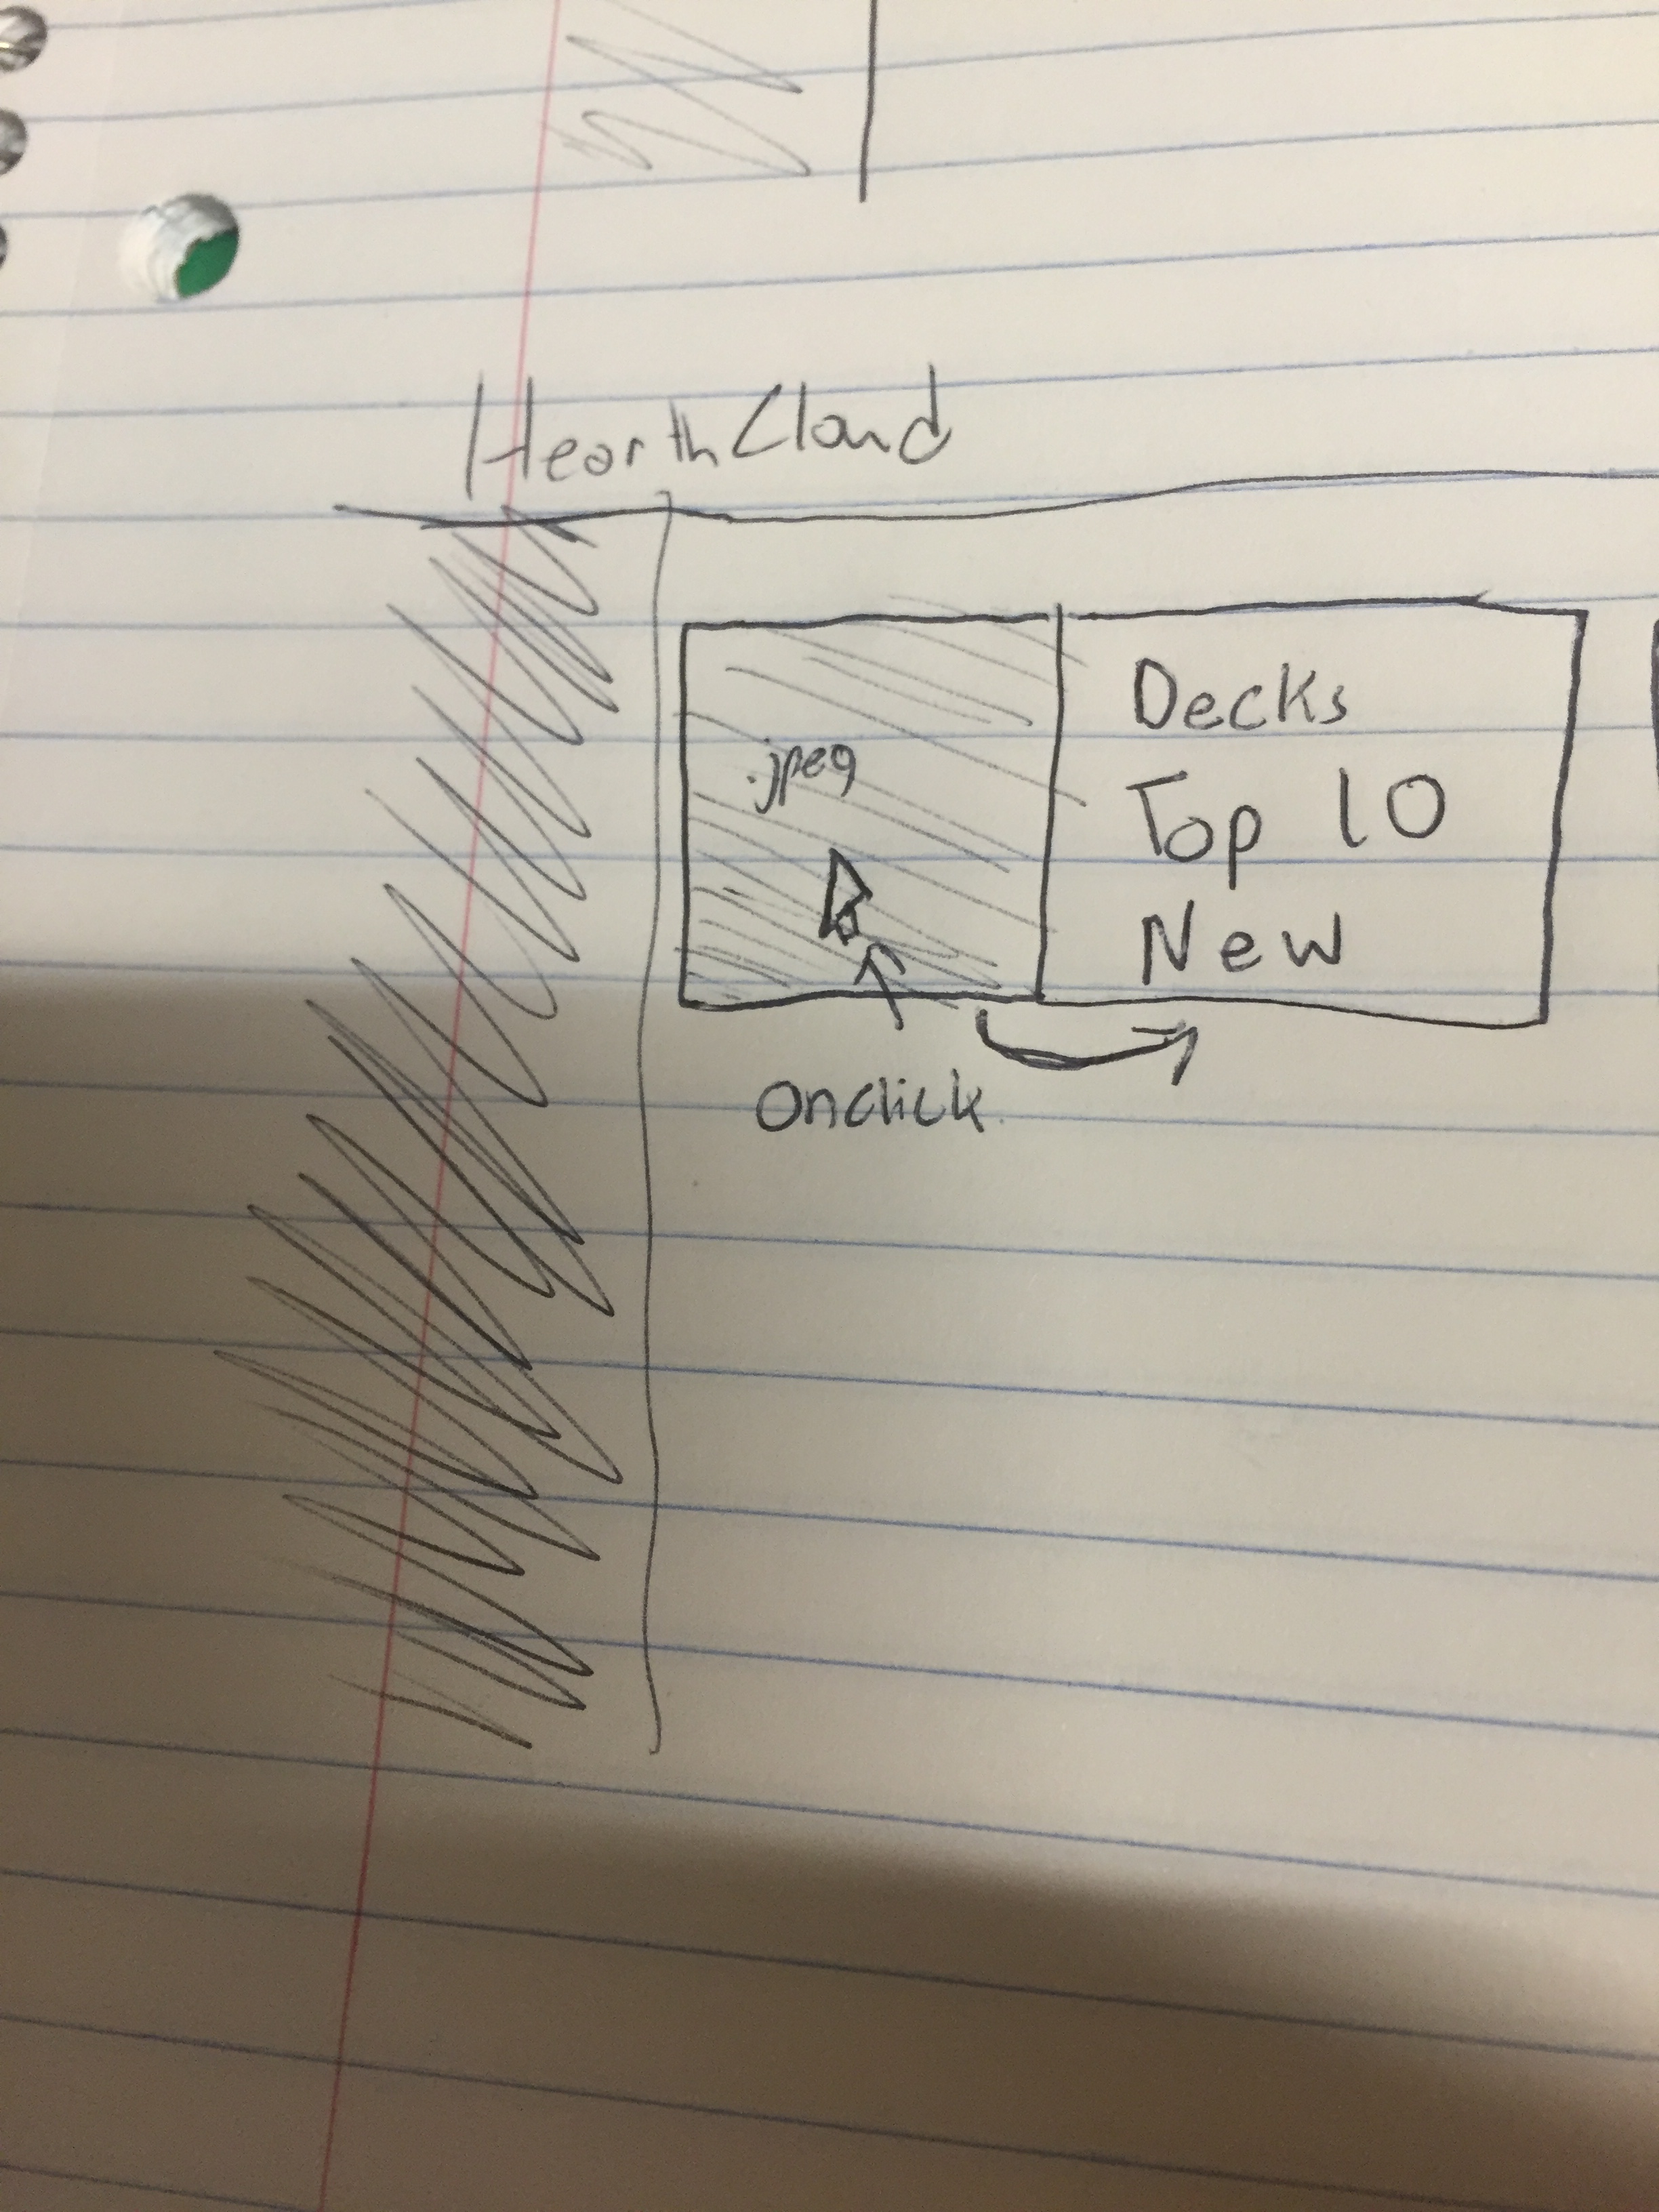 HearthCloud
.jpeg
Decks
Top 10
New
Onclick